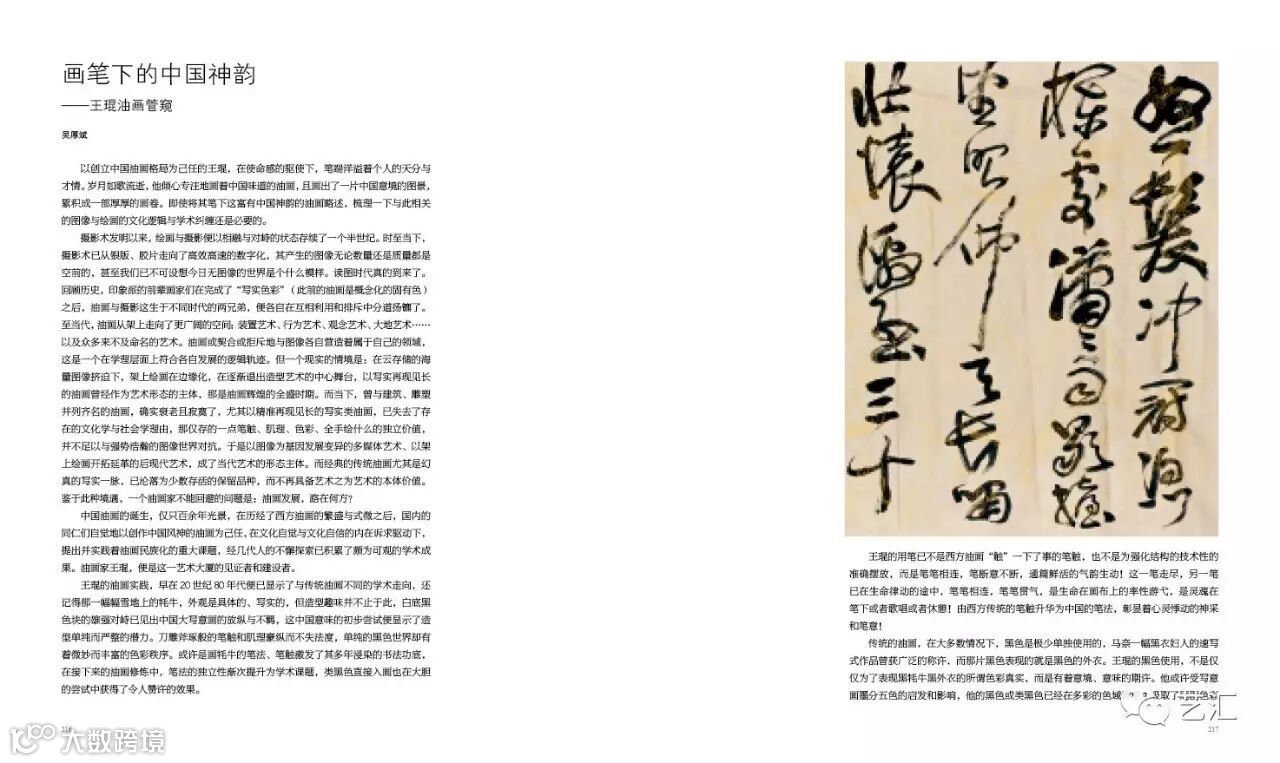 画笔下的中国神韵
——王琨油画管窥
吴厚斌
以创立中国油画格局为己任的王琨，在使命感的驱使下，笔端洋溢着个人的天分与
才情。岁月如歌流逝，他倾心专注地画着中国味道的油画，且画出了一片中国意境的图景，
累积成一部厚厚的画卷。即使将其笔下这富有中国神韵的油画略述，梳理一下与此相关
的图像与绘画的文化逻辑与学术纠缠还是必要的。
摄影术发明以来，绘画与摄影便以相融与对峙的状态存续了一个半世纪。时至当下，
摄影术已从银版、胶片走向了高效高速的数字化，其产生的图像无论数量还是质量都是
空前的，甚至我们已不可设想今日无图像的世界是个什么模样。读图时代真的到来了。
回顾历史，印象派的前辈画家们在完成了“写实色彩”（此前的油画是概念化的固有色）
之后，油画与摄影这生于不同时代的两兄弟，便各自在互相利用和排斥中分道扬镳了。
至当代，油画从架上走向了更广阔的空间：装置艺术、行为艺术、观念艺术、大地艺术……
以及众多来不及命名的艺术。油画或契合或拒斥地与图像各自营造着属于自己的领域，
这是一个在学理层面上符合各自发展的逻辑轨迹。但一个现实的情境是：在云存储的海
量图像挤迫下，架上绘画在边缘化，在逐渐退出造型艺术的中心舞台，以写实再现见长
的油画曾经作为艺术形态的主体，那是油画辉煌的全盛时期。而当下，曾与建筑、雕塑
并列齐名的油画，确实衰老且寂寞了，尤其以精准再现见长的写实类油画，已失去了存
在的文化学与社会学理由，那仅存的一点笔触、肌理、色彩、全手绘什么的独立价值，
并不足以与强势浩瀚的图像世界对抗。于是以图像为基因发展变异的多媒体艺术、以架
上绘画开拓延革的后现代艺术，成了当代艺术的形态主体。而经典的传统油画尤其是幻
真的写实一脉，已沦落为少数存活的保留品种，而不再具备艺术之为艺术的本体价值。
鉴于此种境遇，一个油画家不能回避的问题是：油画发展，路在何方？
中国油画的诞生，仅只百余年光景，在历经了西方油画的繁盛与式微之后，国内的
同仁们自觉地以创作中国风神的油画为己任，在文化自觉与文化自信的内在诉求驱动下，
提出并实践着油画民族化的重大课题，经几代人的不懈探索已积累了颇为可观的学术成
果。油画家王琨，便是这一艺术大厦的见证者和建设者。
王琨的油画实践，早在20世纪80年代便已显示了与传统油画不同的学术走向，还
记得那一幅幅雪地上的牦牛，外观是具体的、写实的，但造型趣味并不止于此，白底黑
色块的雄强对峙已见出中国大写意画的放纵与不羁，这中国意味的初步尝试便显示了造
型单纯而严整的潜力。刀雕斧琢般的笔触和肌理豪纵而不失法度，单纯的黑色世界却有
着微妙而丰富的色彩秩序。或许是画牦牛的笔法、笔触激发了其多年浸染的书法功底，
在接下来的油画修炼中，笔法的独立性渐次提升为学术课题，类黑色直接入画也在大胆
的尝试中获得了令人赞许的效果。
216
大数跨境
怒髮冲冠憑
欄處瀟〻雨歇擡
望眼仰天長嘯
壯懷激烈三十
王琨的用笔已不是西方油画“触”一下了事的笔触，也不是为强化结构的技术性的
准确摆放，而是笔笔相连，笔断意不断，通篇鲜活的气韵生动！这一笔走尽，另一笔
已在生命律动的途中，笔笔相连，笔笔贯气，是生命在画布上的率性游弋，是灵魂在
笔下或者歌唱或者休憩！由西方传统的笔触升华为中国的笔法，彰显着心灵悸动的神采
和笔意！
传统的油画，在大多数情况下，黑色是极少单独使用的，马奈一幅黑衣妇人的速写
式作品曾获广泛的称许，而那片黑色表现的就是黑色的外衣。王琨的黑色使用，不是仅
仅为了表现黑牦牛黑外衣的所谓色彩真实，而是有着意境、意味的期许。他或许受写意
画墨分五色的启发和影响，他的黑色或类黑色已经在多彩的色域
艺汇
217